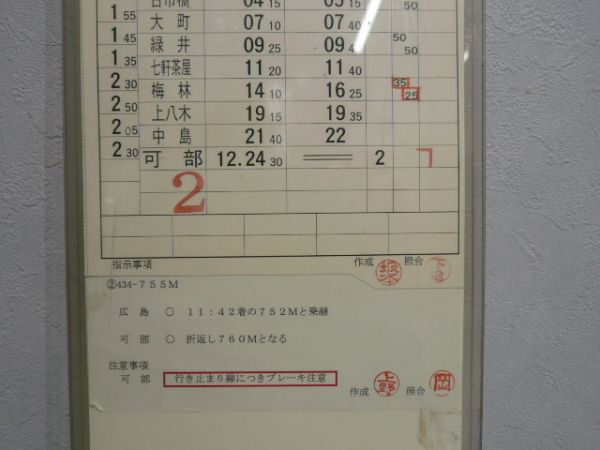 古市橋 04 15 05 15 50
1 55 大町 07 10 07 40
1 35 緑井 09 25 09 50 50
七軒茶屋 11 20 11 40
2 30 梅林 14 10 16 25 35 25
2 50 上八木 19 15 19 35
2 05 中島 21 40 22
2 30 可部 12.24 30 2
2
指示事項 作成 照合
②434-755M
広島 ○ 11:42着の752Mと乗継
可部 ○ 折返し760Mとなる
注意事項
可部 行き止まり線につきブレーキ注意
作成 上野 照合 岡